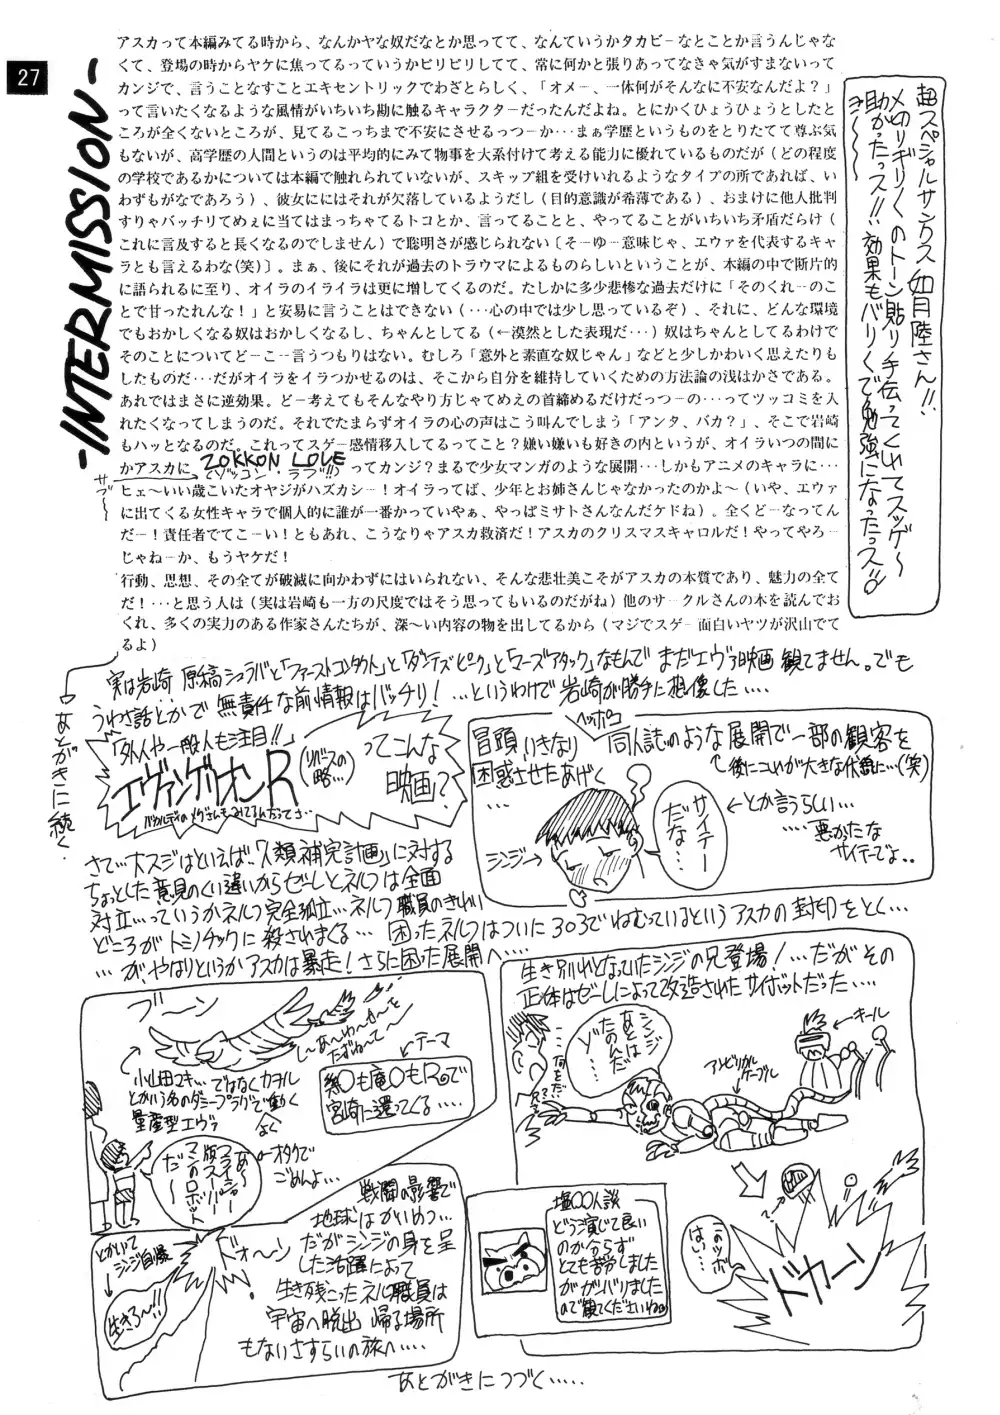 27
-INTERMISSION-
アスカって本編みてる時から、なんかヤな奴だなとか思ってて、なんていうかタカビーなとことか言うんじゃな
くて、登場の時からヤケに焦ってるっていうかピリピリしてて、常に何かと張りあってなきゃ気がすまないって
カンジで、言うことなすことエキセントリックでわざとらしく、「オメー、一体何がそんなに不安なんだよ?」
って言いたくなるような風情がいちいち勘に触るキャラクターだったんだよね。とにかくひょうひょうとしたと
ころが全くないところが、見てるこっちまで不安にさせるっつーか･･･まぁ学歴というものをとりたてて尊ぶ気
もないが、高学歴の人間というのは平均的にみて物事を大系付けて考える能力に優れているものだが(どの程度
の学校であるかについては本編で触れられていないが、スキップ組を受けいれるようなタイプの所であれば、い
わずもがなであろう)、彼女ににはそれが欠落しているようだし(目的意識が希薄である)、おまけに他人批判
すりゃバッチリてめぇに当てはまっちゃてるトコとか、言ってることと、やってることがいちいち矛盾だらけ(
これに言及すると長くなるのでしません)で聡明さが感じられない〔そーゆー意味じゃ、エヴァを代表するキャ
ラとも言えるわな(笑)〕。まぁ、後にそれが過去のトラウマによるものらしいということが、本編の中で断片的
に語られるに至り、オイラのイライラは更に増してくるのだ。たしかに多少悲惨な過去だけに「そのくれーのこ
とで甘ったれんな!」と安易に言うことはできない(･･･心の中では少し思っているぞ)、それに、どんな環境
でもおかしくなる奴はおかしくなるし、ちゃんとしてる(←漠然とした表現だ･･･)奴はちゃんとしてるわけで
そのことについてどーこー言うつもりはない。むしろ「意外と素直な奴じゃん」などと少しかわいく思えたりも
したものだ･･･だがオイラをイラつかせるのは、そこから自分を維持していくための方法論の浅はかさである。
あれではまさに逆効果。どー考えてもそんなやり方じゃてめえの首締めるだけだっつーの･･･ってツッコミを入
れたくなってしまうのだ。それでたまらずオイラの心の声はこう叫んでしまう「アンタ、バカ?」、そこで岩崎
もハッとなるのだ。これってスゲー感情移入してるってこと?嫌い嫌いも好きの内というが、オイラいつの間に
かアスカに ZOKKON LOVE ってカンジ?まるで少女マンガのような展開･･･しかもアニメのキャラに･･･
てゾッコン・ラブ!!
サブ〜
ヒェ〜いい歳こいたオヤジがハズカシー!オイラってば、少年とお姉さんじゃなかったのかよ〜(いや、エヴァ
に出てくる女性キャラで個人的に誰が一番かっていやぁ、やっぱミサトさんなんだケドね)。全くどーなってん
だー!責任者でてこーい!ともあれ、こうなりゃアスカ救済だ!アスカのクリスマスキャロルだ!やってやろー
じゃねーか、もうヤケだ!
行動、思想、その全てが破滅に向かわずにはいられない、そんな悲壮美こそがアスカの本質であり、魅力の全て
だ!･･･と思う人は(実は岩崎も一方の尺度ではそう思ってもいるのだがね)他のサークルさんの本を読んでお
くれ、多くの実力のある作家さんたちが、深〜い内容の物を出してるから(マジでスゲー面白いヤツが沢山でて
るよ)
超スペシャルサンクス 如月陸さん!!
〆切りギリギリのトーン貼り手伝ってくれてスッゲ〜
助かったっス!!効果もバリバリで勉強になったっス!!
→あとがきに続く
実は岩崎 原稿シュラバと「ファーストコンタクト」と「ダンテズピーク」と「マーズアタック」なもんで まだエヴァ映画 観てません。でも
うわさ話とかで 無責任な前情報はバッチリ! …というわけで 岩崎が勝手に想像した‥‥
「外人や一般人も注目!!」
エヴァンゲリオンR
(リバースの略…)
ってこんな映画?
冒頭、いきなり ヘッポコ 同人誌のような展開で一部の観客を
困惑させたあげく…
後にコレが大きな伏線に…(笑)
シンジ→
サイテーだな…
←とか言うらしい…
‥‥悪かたな
サイテーでよ‥
さて…大スジはといえば「人類補完計画」に対する
ちょっとした意見のくい違いからゼーレとネルフは全面
対立…っていうかネルフ完全孤立…ネルフ職員のきれい
どころがトミノチックに殺されまくる… 困ったネルフはついに303でねむっているというアスカの封印をとく…
…が、やはりというかアスカは暴走!さらに困った展開へ‥‥
ブーン
〜あ〜わ〜せ〜を
たずね〜て〜
小山田マキ… ではなくカヲル
とかいう名のダミープラグで動く
量産型エヴァ
テーマ
糸〇も庵〇もRで
宮崎に還ってくる‥‥
あ〜
フライシャー版
スーパー
マンのロボット
だ〜
←オタクで
ごめんよ…
とかいって
シンジ自爆
生きろ〜!!
ドォーン
戦闘の影響で
地球はかいめつ…
だがシンジの身を呈
した活躍によって
生き残ったネルフ職員は
宇宙へ脱出 帰る場所
もないさすらいの旅へ‥‥
生き別れとなっていたシンジの兄登場!…だが その
正体はゼーレによって改造されたサイボットだった‥‥
シンジ
あとは
たのんだ
ゾ…
何をだ…
アンビリカル
ケーブル
←キール
塩〇〇人談
どう演じて良い
のか分らず
とても苦労しました
がガンバりました
ので観てくださいね
このツボ
はい…
ドカーン
あとがきにつづく‥‥‥